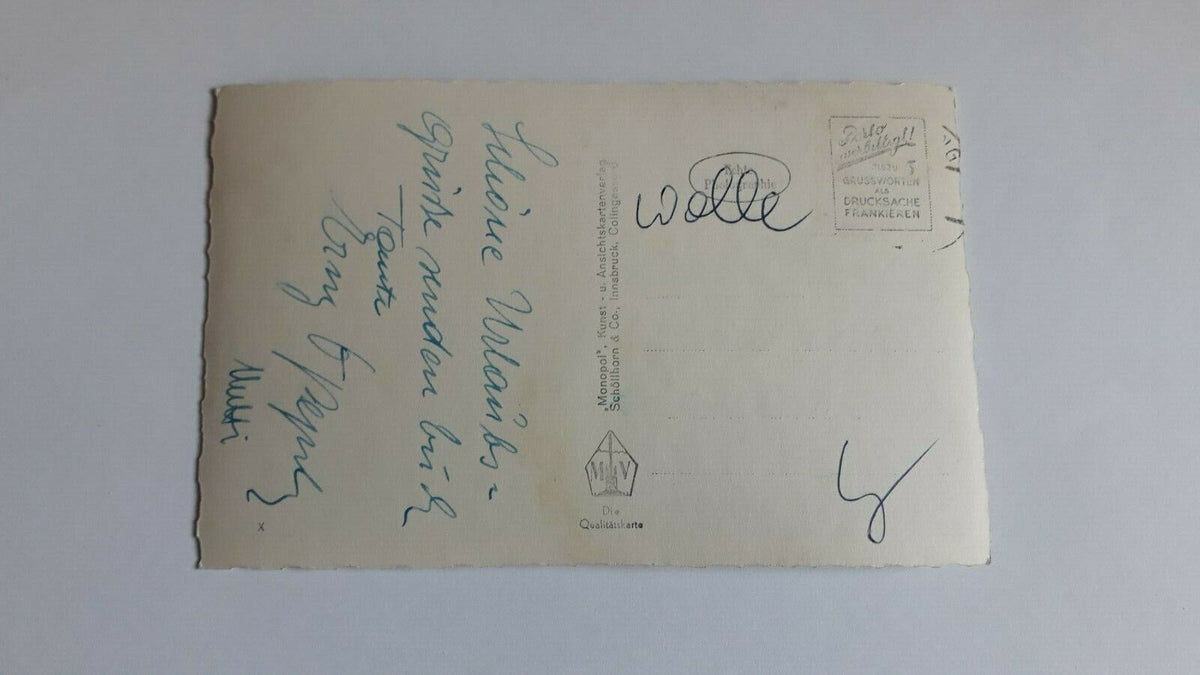 Schöne Urlaubs-
Grüße senden Euch
Tante
Erny &
Mutti
X
"Monopol", Kunst- u. Ansichtskartenverlag
Schöllhorn & Co., Innsbruck, Colingasse
M V
Die
Qualitätskarte
Echte
Photographie
Wolle
Porto
verbilligt!
5
GRUSSWORTEN
ALS
DRUCKSACHE
FRANKIEREN